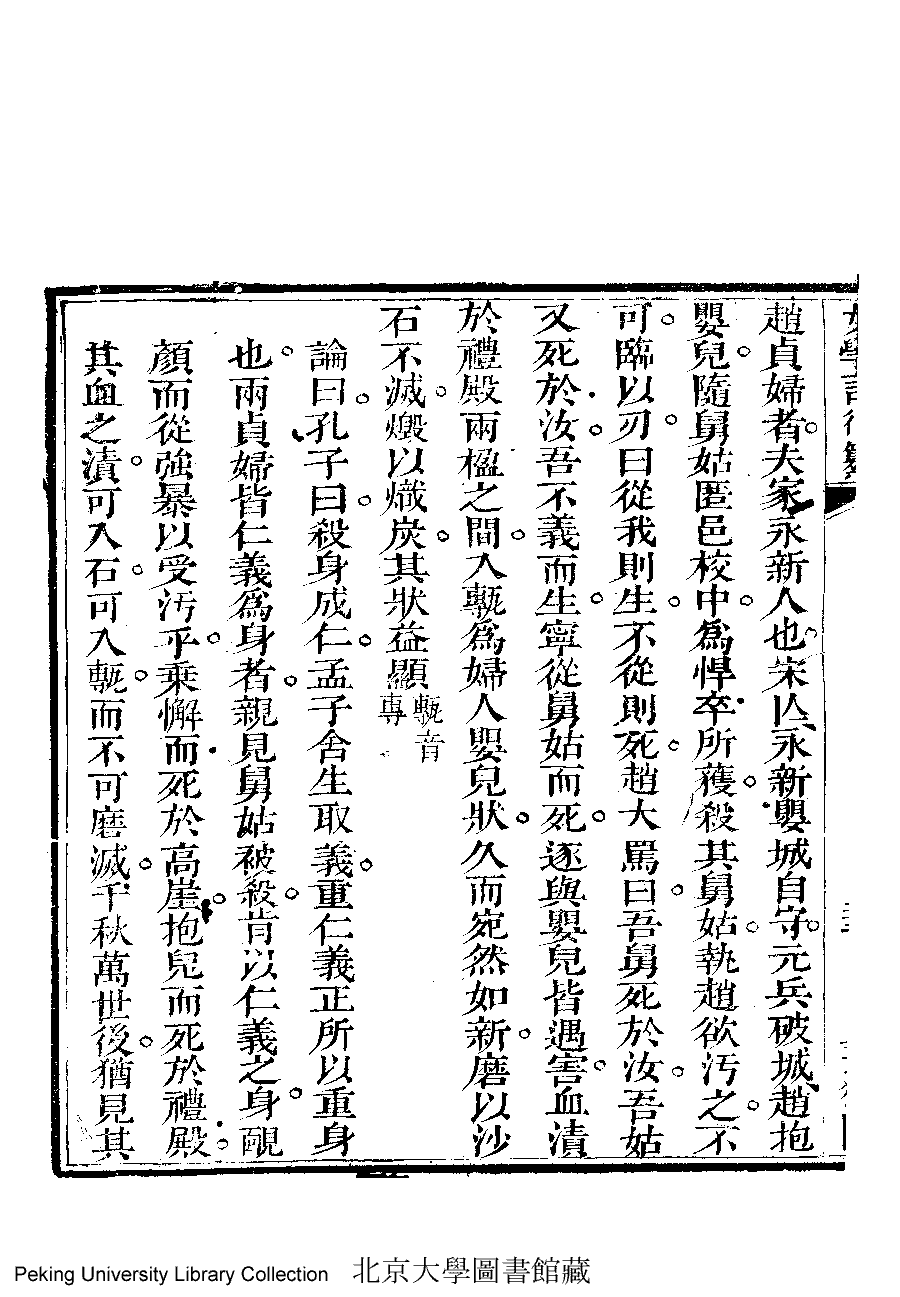 趙貞婦者夫家永新人也宋亾永新嬰城自守元兵破城趙抱
嬰兒隨舅姑匿邑校中爲悍卒所獲殺其舅姑執趙欲汚之不
可臨以刃曰從我則生不從則死趙大罵曰吾舅死於汝吾姑
又死於汝吾不義而生寧從舅姑而死遂與嬰兒皆遇害血漬
於禮殿兩楹之間入甎爲婦人嬰兒狀久而宛然如新磨以沙
石不滅燬以熾炭其狀益顯甎音專
論曰孔子曰殺身成仁孟子舍生取義重仁義正所以重身
也兩貞婦皆仁義爲身者親見舅姑被殺肯以仁義之身靦
顔而從強暴以受汚乎乗懈而死於高崖抱兒而死於禮殿
其血之漬可入石可入甎而不可磨滅千秋萬世後猶見其
Peking University Library Collection 北京大學圖書館藏